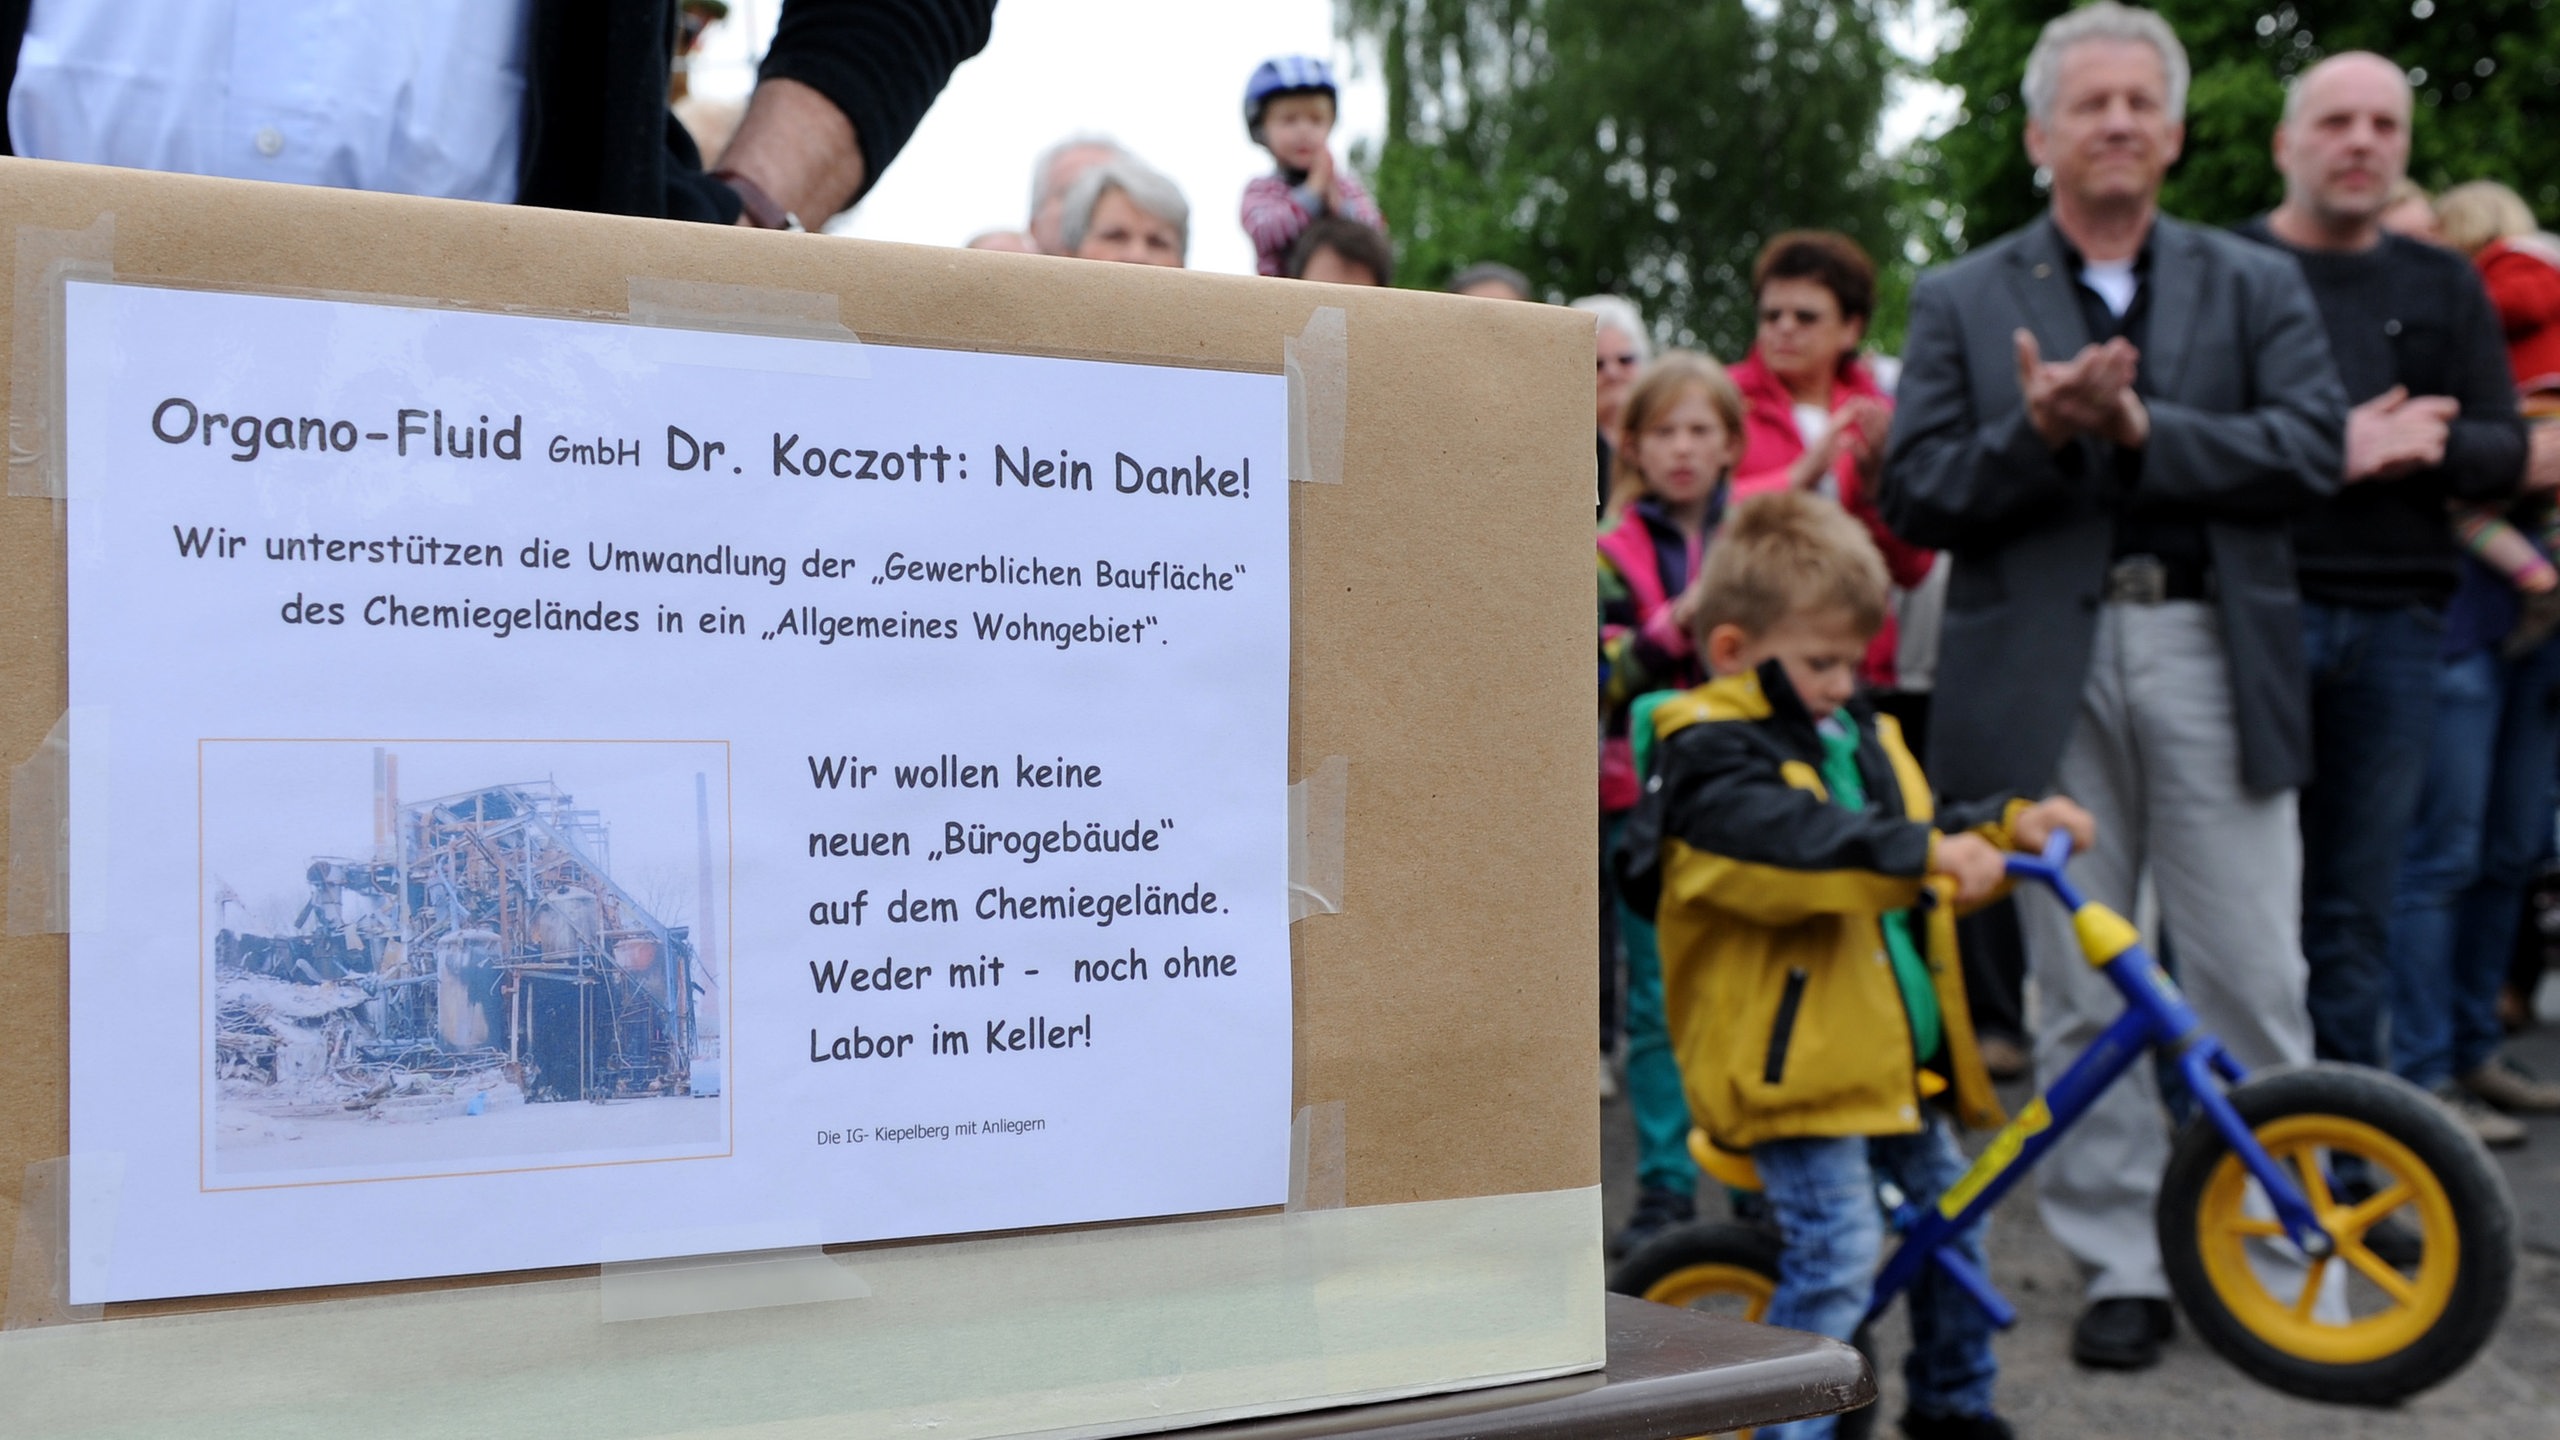 Organo-Fluid GmbH Dr. Koczott: Nein Danke!
Wir unterstützen die Umwandlung der „Gewerblichen Baufläche“
des Chemiegeländes in ein „Allgemeines Wohngebiet“.
Wir wollen keine
neuen „Bürogebäude“
auf dem Chemiegelände.
Weder mit - noch ohne
Labor im Keller!
Die IG- Kiepelberg mit Anliegern